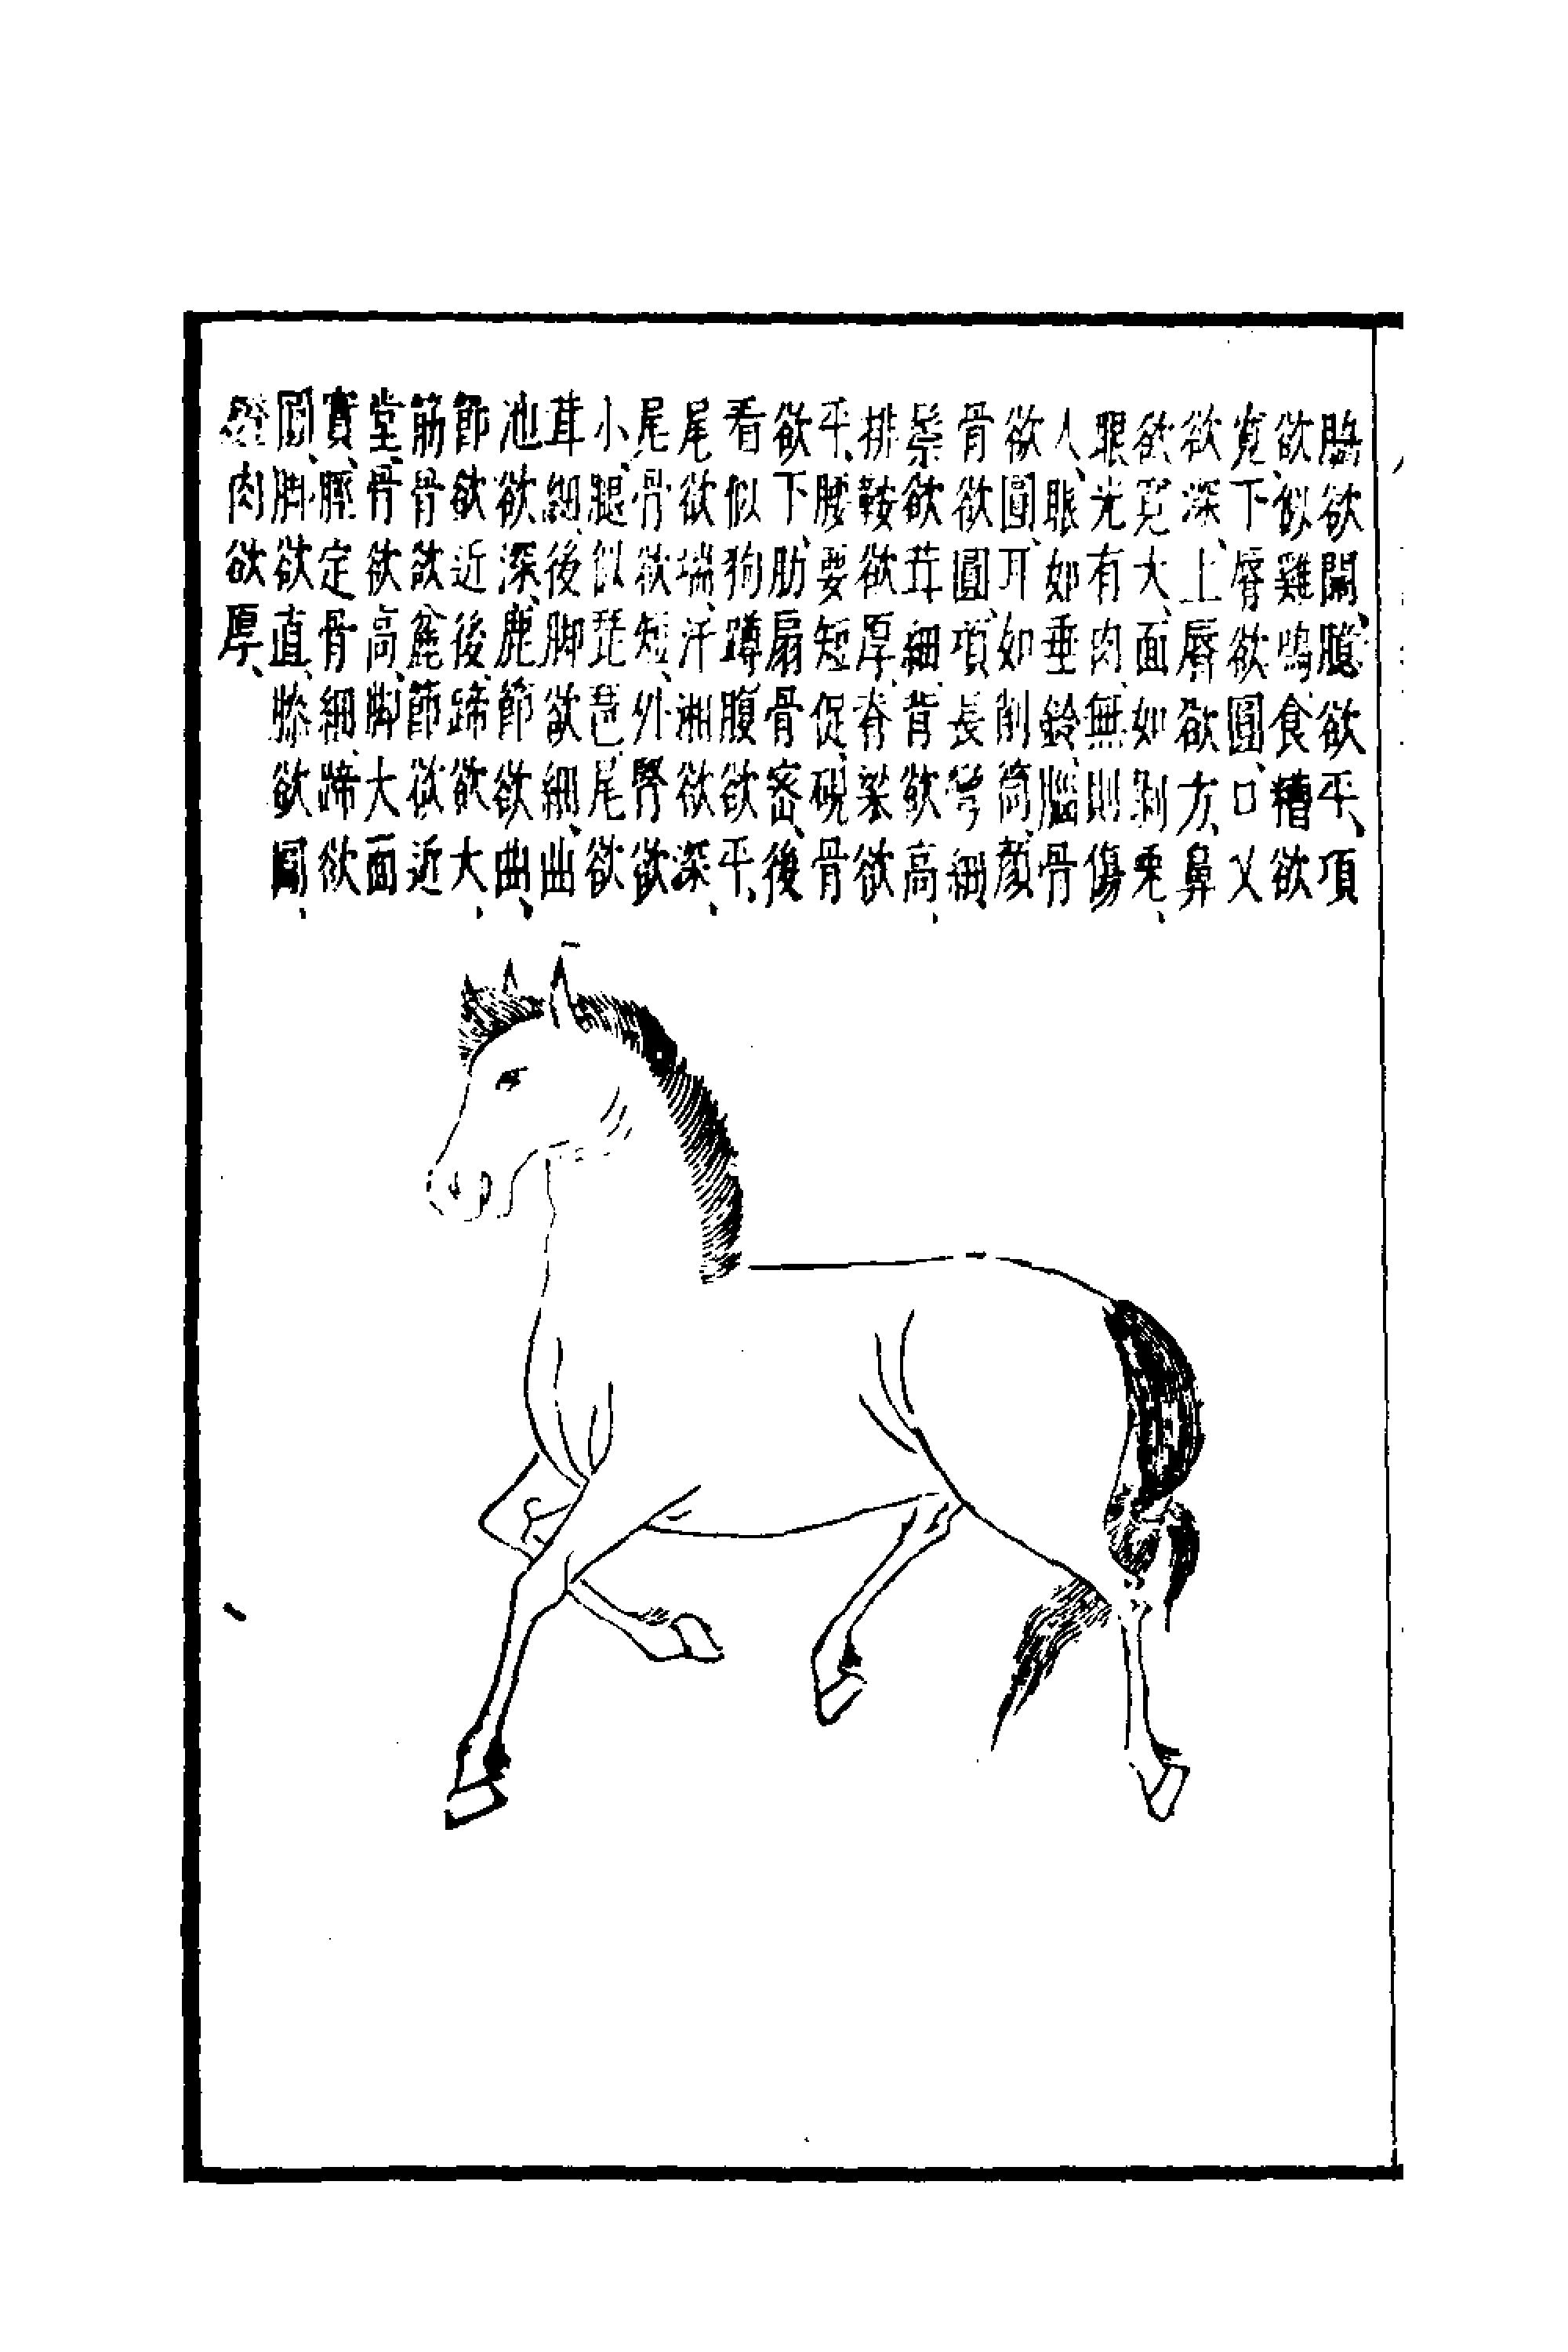 胸欲闊、臆欲平、項
欲似雞鳴、食糟欲
寬、下脣欲圓、口乂
欲深、上脣欲方、鼻
欲寬大、面如剝兎、
眼光有肉、無則傷
人、眼如垂鈴、腦骨
欲圓、耳如削筒、顏
骨欲圓、項長彎細、
鬃欲茸細、背欲高、
排鞍欲厚、脊梁欲
平、腰要短促、硯骨
欲下、肋扇骨密、後
看似狗蹲、腹欲平、
尾欲瑞、汗溝欲深、
尾骨欲短、外腎欲
小、腿似琵琶、尾欲
茸細、後脚欲細、曲
池欲深、鹿節欲曲、
節欲近後、蹄欲大、
筋骨欲麄、節欲近
堂、骨欲高、脚大面
實、脛定骨細、蹄欲
圓、脚欲直、膝欲圓、
肉欲厚、